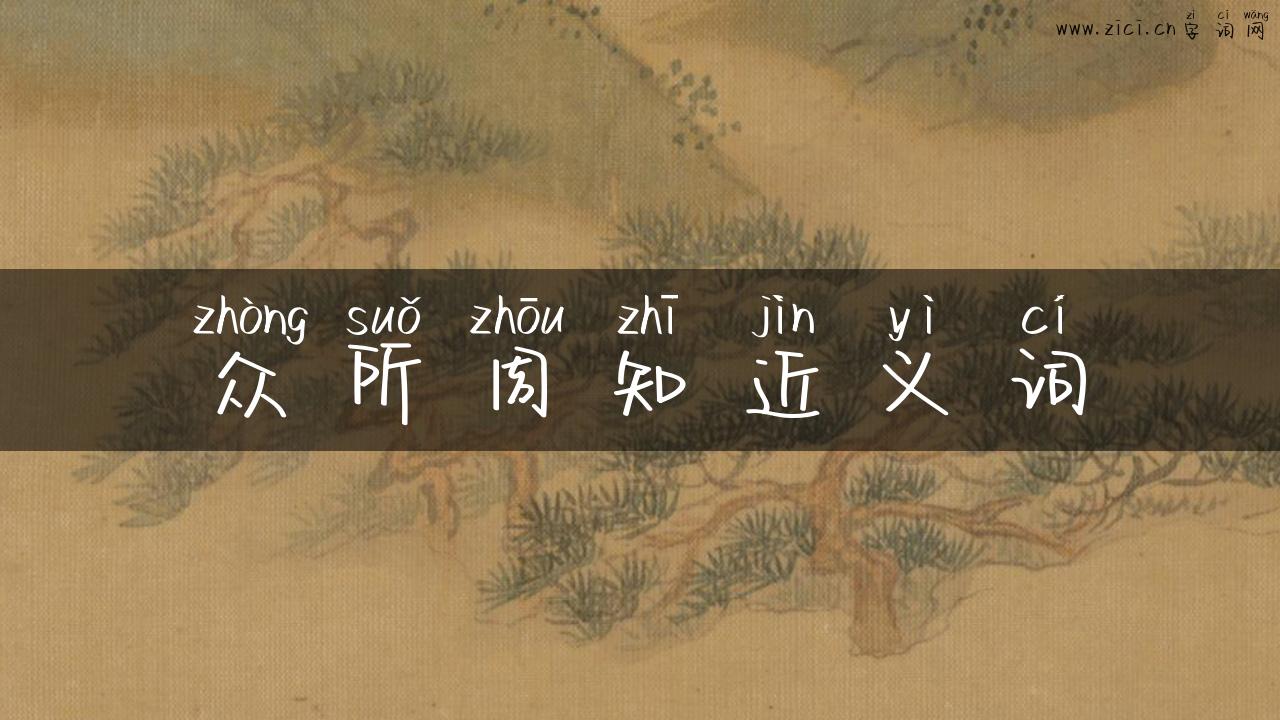 zì cí wǎng
www.zici.cn 字词网
zhòng suǒ zhōu zhī jìn yì cí
众所周知近义词